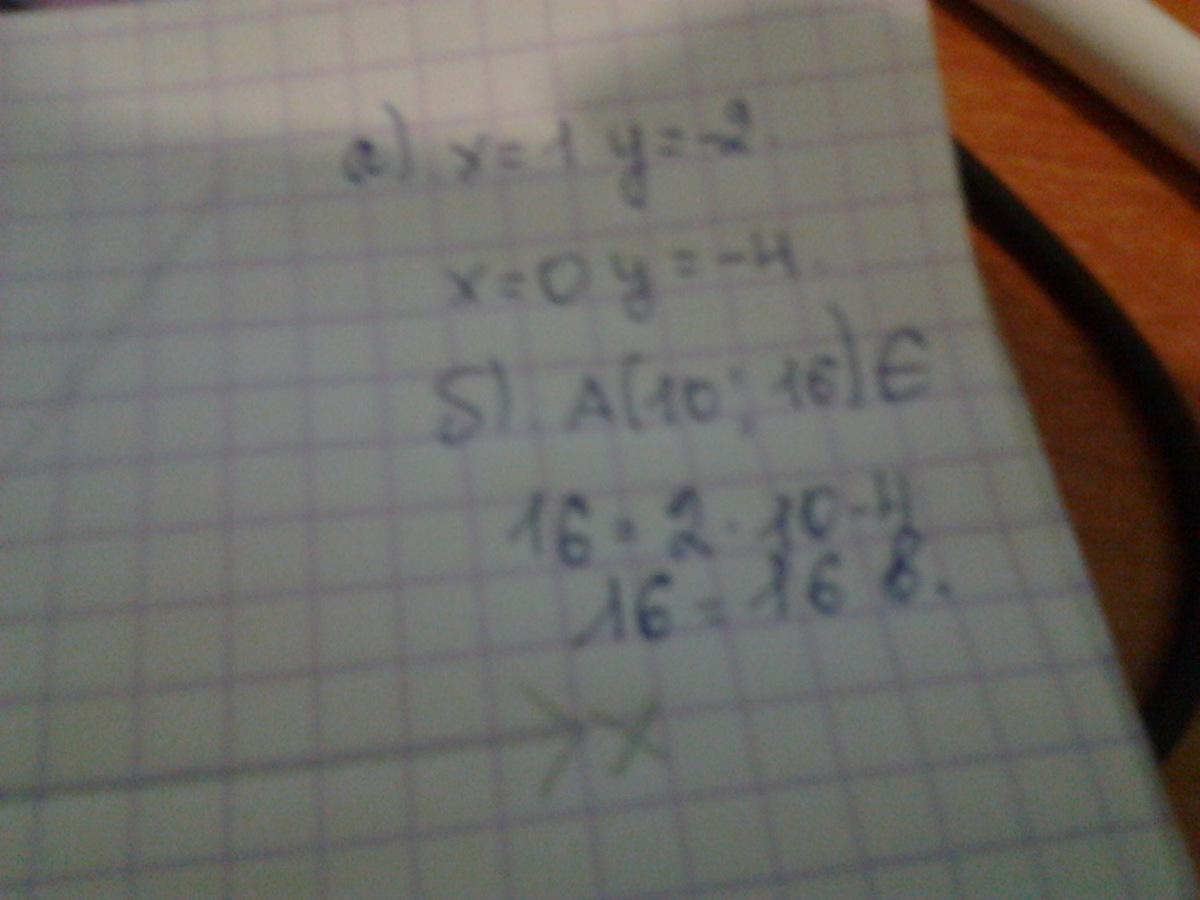 а). x=1 y=-2.
x=0 y=-4.
б). A(10; 16)∈
16=2·10-4
16=16 в.
x